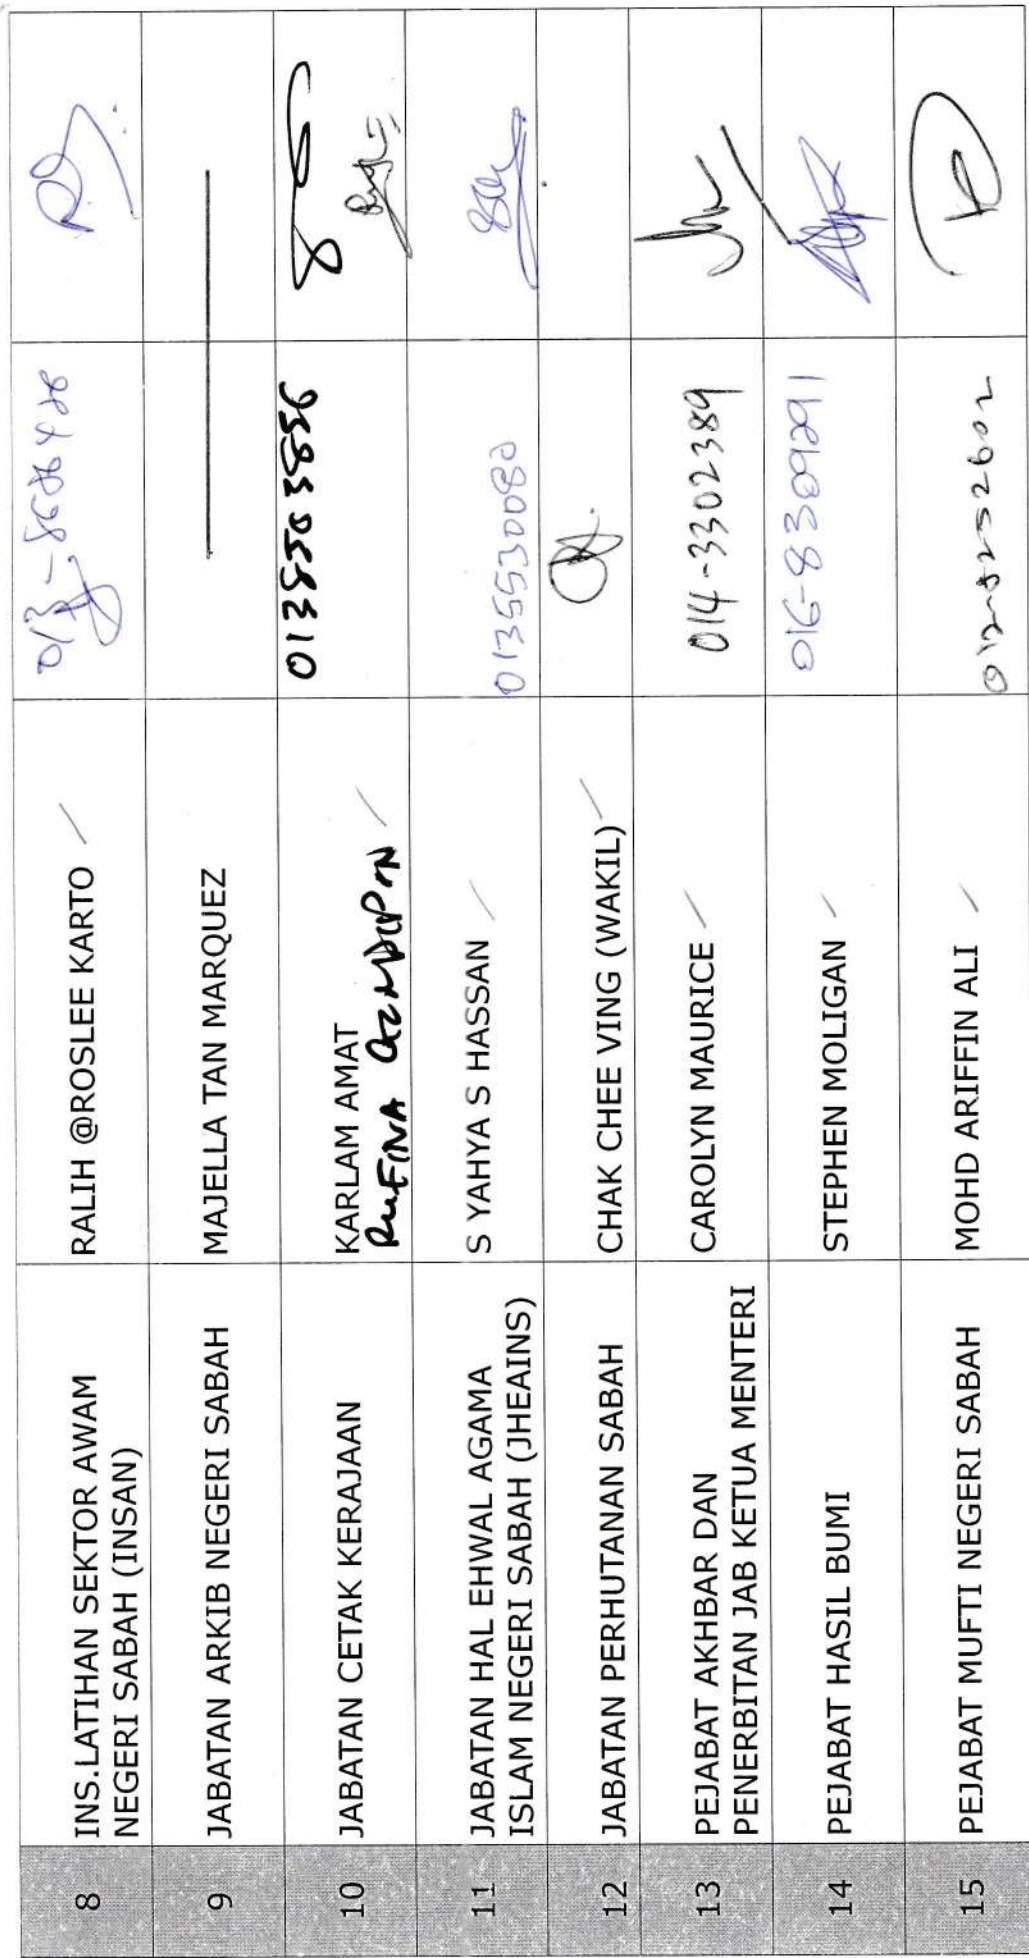 8
INS.LATIHAN SEKTOR AWAM
NEGERI SABAH (INSAN)
RALIH @ROSLEE KARTO
9
JABATAN ARKIB NEGERI SABAH
MAJELLA TAN MARQUEZ
10
JABATAN CETAK KERAJAAN
KARLAM AMAT
RUFINA
0135503836
11
JABATAN HAL EHWAL AGAMA
ISLAM NEGERI SABAH (JHEAINS)
S YAHYA S HASSAN
0135530080
12
JABATAN PERHUTANAN SABAH
CHAK CHEE VING (WAKIL)
13
PEJABAT AKHBAR DAN
PENERBITAN JAB KETUA MENTERI
CAROLYN MAURICE
014-3302389
14
PEJABAT HASIL BUMI
STEPHEN MOLIGAN
016-8309291
15
PEJABAT MUFTI NEGERI SABAH
MOHD ARIFFIN ALI